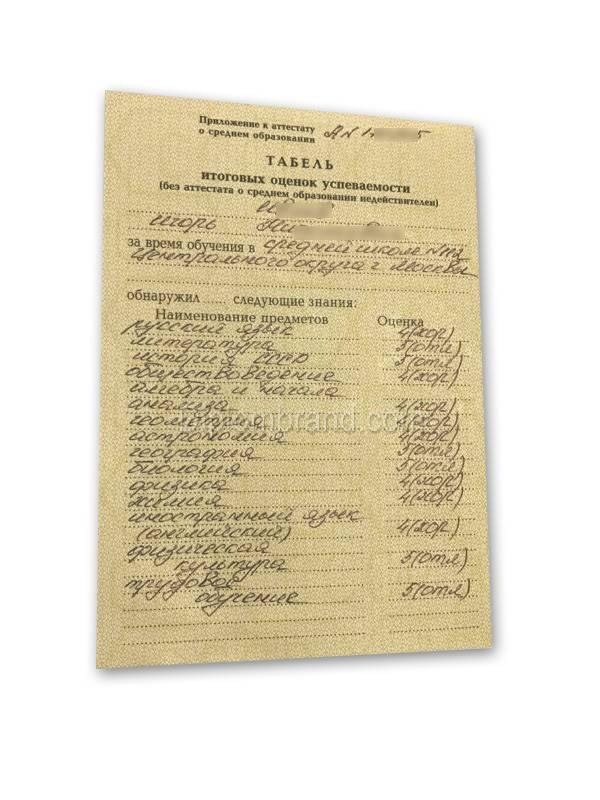 Приложение к аттестату
о среднем образовании
ТАБЕЛЬ
итоговых оценок успеваемости
(без аттестата о среднем образовании недействителен)
Игорь
за время обучения в средней школе №
Центрального округа г. Москвы
обнаружил ...... следующие знания:
Наименование предметов Оценка
русский язык 4(хор)
литература 5(отл)
история СССР 5(отл)
обществоведение 4(хор)
алгебра и начала
анализа 4(хор)
геометрия 4(хор)
астрономия 4(хор)
география 5(отл)
биология 5(отл)
физика 4(хор)
химия 4(хор)
иностранный язык
(английский) 4(хор)
физическая
культура 5(отл)
трудовое
обучение 5(отл)